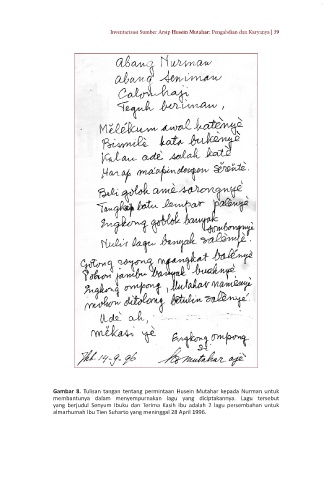 Inventarisasi Sumber Arsip Husein Mutahar: Pengabdian dan Karyanya | 39
Abang Nurman
abang seniman
Calon haji
Teguh beriman,
Mělékum awal katènyè
Bismilè kata bukènyè
Kalau adè salah katè
Harap ma'apin dengen sěrěntè.
Beli golok amè sarongnyè
Tangkep batu lempar palènyè
Engkong goblok banyak sombongnyè
Nulis lagu banyak salènyè.
Gotong royong ngangkat balènyè
Pohon jambu banyak buahnyè
Engkong ompong, Mutahar namènyè
mohon ditolong betulin salènyè.
Udè ah,
měkasi yè
Engkong ompong
Jkt 14-9-96
Hs mutahar ajè
Gambar 8. Tulisan tangan tentang permintaan Husein Mutahar kepada Nurman untuk
membantunya dalam menyempurnakan lagu yang diciptakannya. Lagu tersebut
yang berjudul Senyum Ibuku dan Terima Kasih Ibu adalah 2 lagu persembahan untuk
almarhumah Ibu Tien Suharto yang meninggal 28 April 1996.